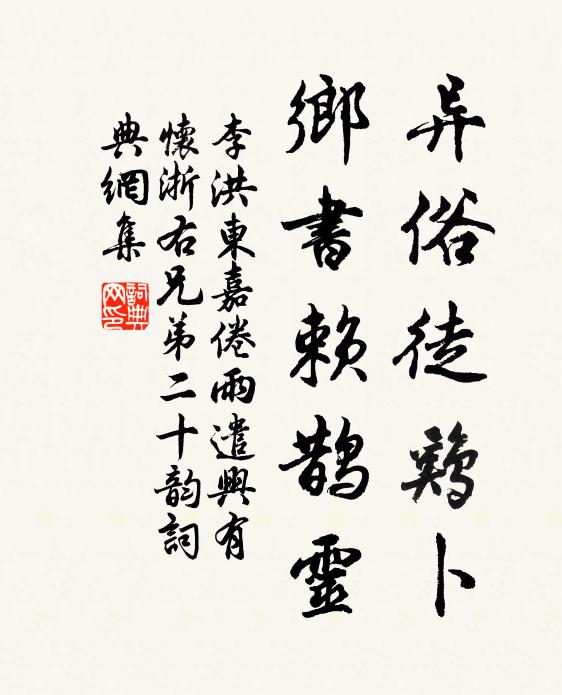 异俗徒鷄卜
鄉書賴鵲靈
李洪東嘉倦雨遣興有
懷浙右兄弟二十韵詞
典網集
詞典
网印